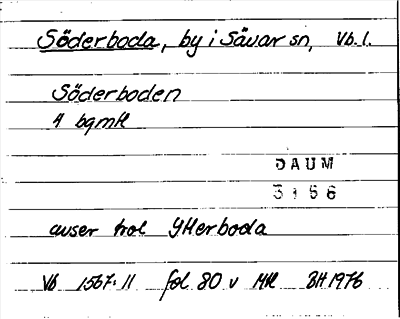 Söderboda, by i Sävar sn, Vb. l.
Söderboden
4 bgmtl
DAUM
3156
avser trol Ytterboda
Vb 1567:11 fol 80 v Mtl BH 1976